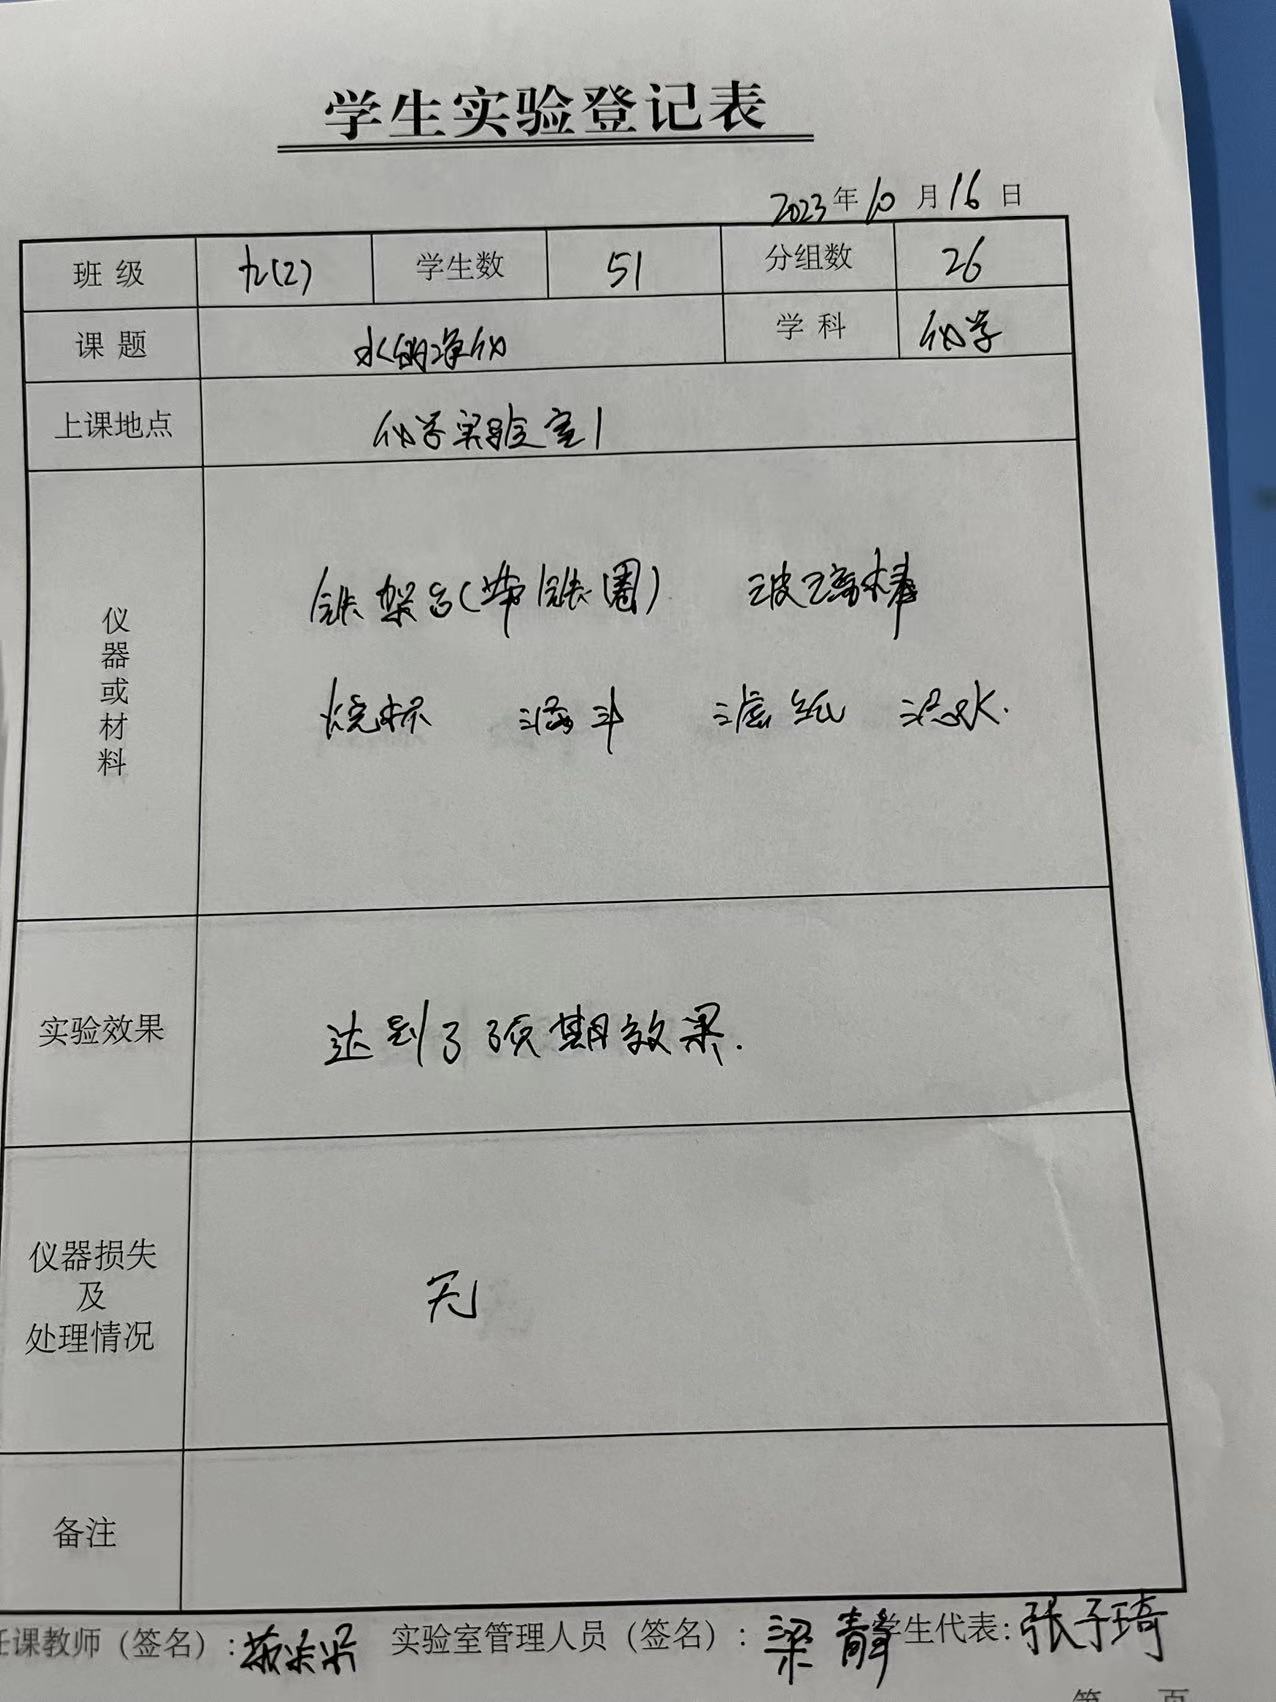 学生实验登记表
2023年10月16日
班级 九(2) 学生数 51 分组数 26
课题 水的净化 学科 化学
上课地点 化学实验室1
仪器或材料 铁架台(带铁圈) 玻璃棒
烧杯 漏斗 滤纸 泥水.
实验效果 达到了预期效果.
仪器损失
及
处理情况 无
备注
任课教师（签名）: 实验室管理人员（签名）: 梁静 学生代表: 张子琦
第 页